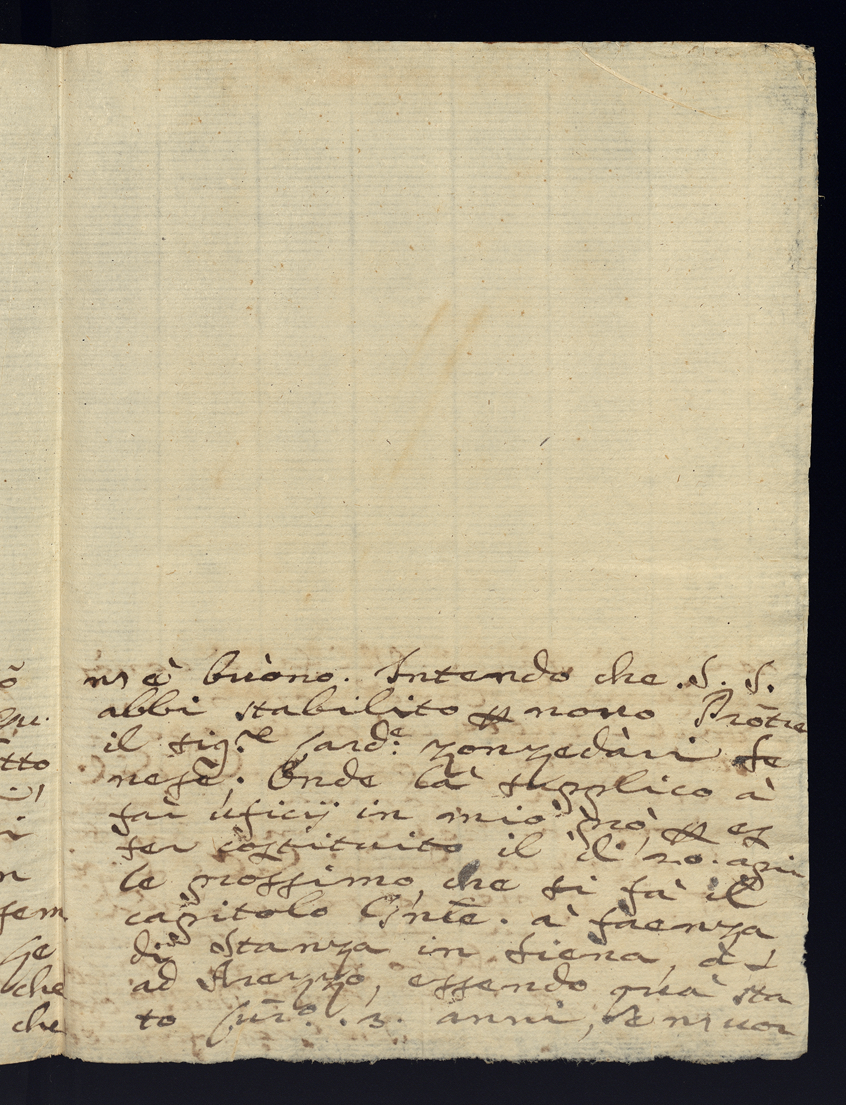 ō
tto
i
n
sem
che
che
m è buono. Intendo che S. S.
abbi stabilito p novo Prōtre
il sig.re Card.e Zonzedàri Se
nese; Onde la supplico à
far uficij in mio prò, p es
ser costituito il dì 20. apri
le prossimo, che si fà il
capitolo Gñle. à faenza
di Stanza in siena, ò
ad Arezzo, essendo quà sta
to 3. anni, se